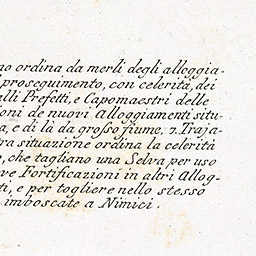 no ordina da merli degli alloggia-
l proseguimento, con celerità, dei
alli Prefetti, e Capomaestri delle
ioni de nuovi Alloggiamenti situ-
a, e di là da grosso fiume. 7. Traja-
tra situazione ordina la celerità
o, che tagliano una Selva per uso
ve Fortificazioni in altri Allog-
ti, e per togliere nello stesso
imboscate a Nimici.